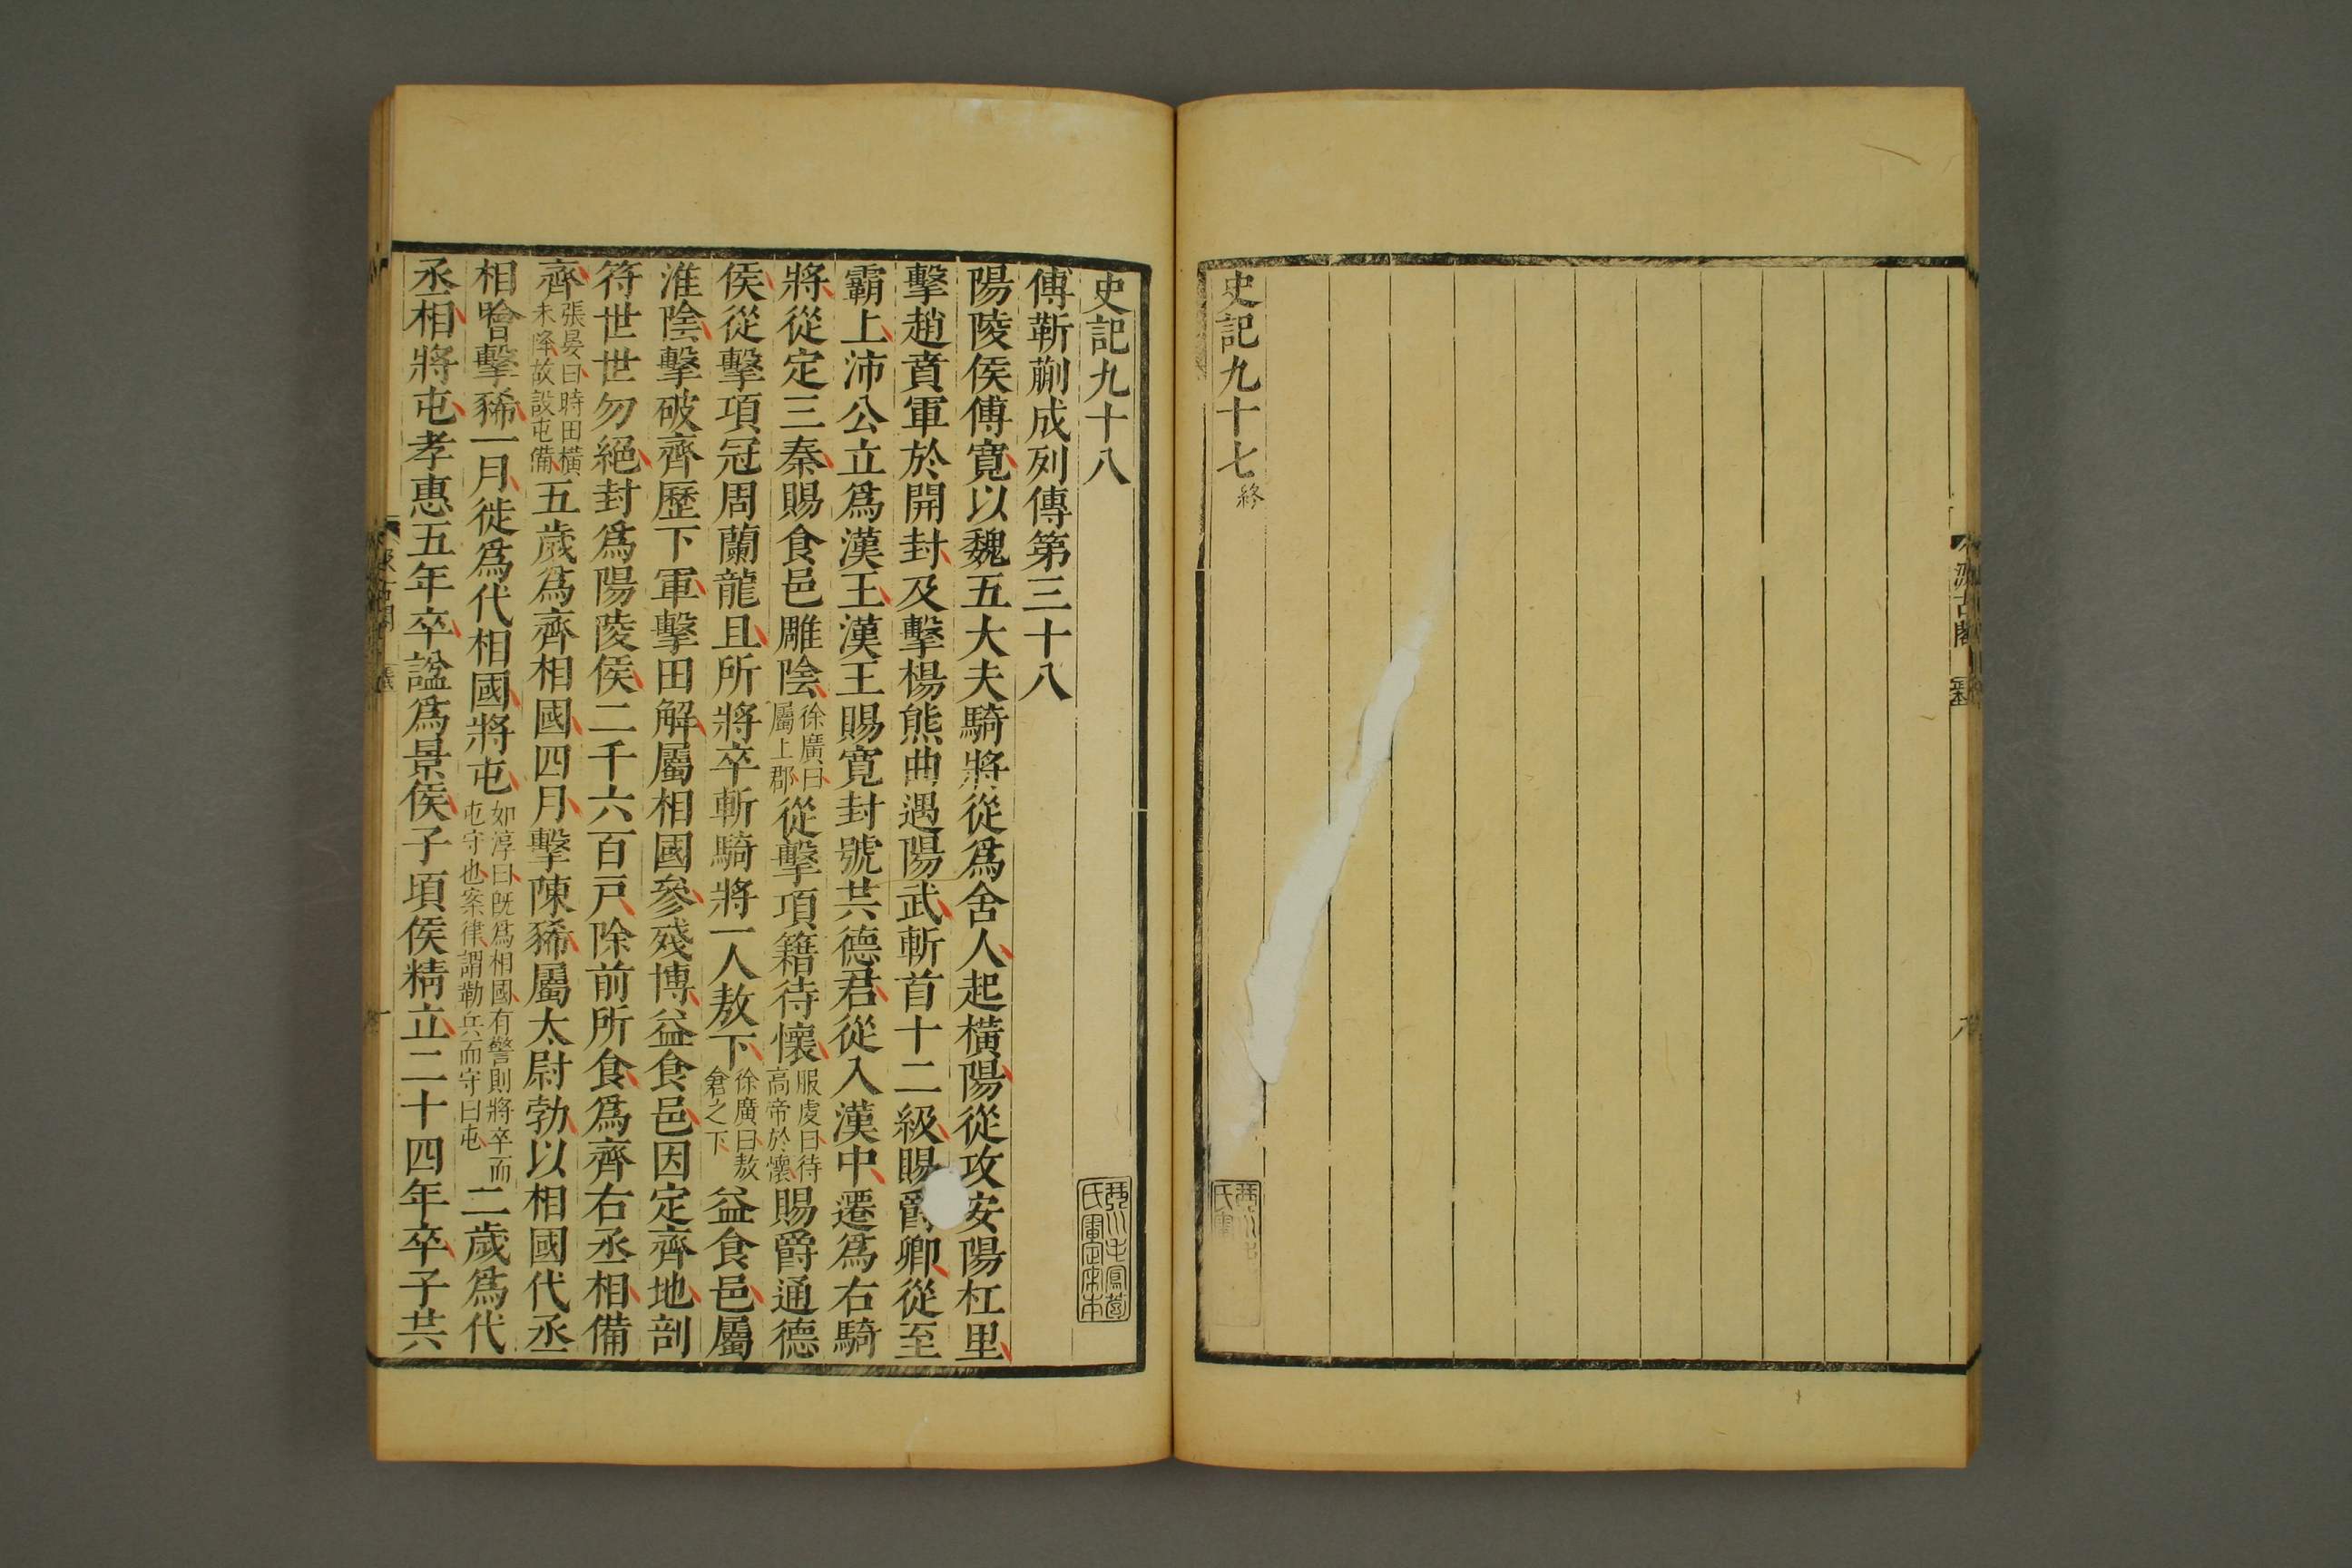 史記九十七終
史記九十八
傅靳蒯成列傳第三十八
陽陵侯傅寬以魏五大夫騎將從爲舍人起橫陽從攻安陽杠里
擊趙賁軍於開封及擊楊熊曲遇陽武斬首十二級賜爵卿從至
霸上沛公立爲漢王漢王賜寛封號共德君從入漢中遷爲右騎
將從定三秦賜食邑雕陰徐廣曰屬上郡從擊項籍待懷服虔曰待高帝於懷賜爵通德
侯從擊項冠周蘭龍且所將卒斬騎將一人敖下徐廣曰敖倉之下益食邑屬
淮陰擊破齊歷下軍擊田解屬相國參殘博益食邑因定齊地剖
符世世勿絕封爲陽陵侯二千六百戸除前所食爲齊右丞相備
齊張晏曰時田橫未降故設屯備五歲爲齊相國四月擊陳豨屬太尉勃以相國代丞
相噲擊豨一月徙爲代相國將屯如淳曰旣爲相國有警則將卒而屯守也案律謂勒兵而守曰屯二歲爲代
丞相將屯孝惠五年卒諡爲景侯子頃侯精立二十四年卒子共
汲古閣